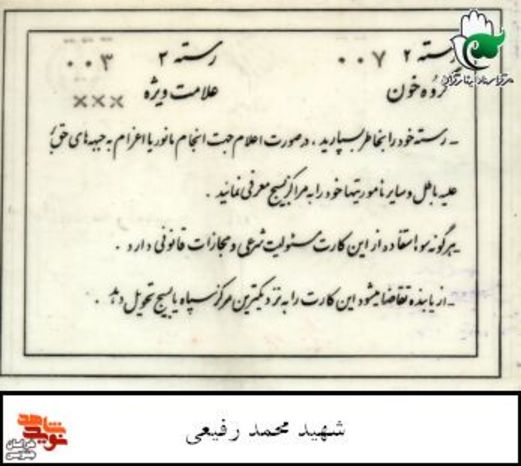 رسته ۲ ۰۰۷ رسته ۳ ۰۰۳
گروه خون علامت ویژه ×××
- رسته خود را بخاطر بسپارید ، در صورت اعلام جهت انجام مانور یا اعزام به جبهه های حق
علیه باطل و سایر مأموریتها خود را به مراکز بسیج معرفی نمائید .
- هرگونه سوء استفاده از این کارت مسئولیت شرعی و مجازات قانونی دارد .
- از یابنده تقاضا میشود این کارت را به نزدیکترین مرکز سپاه یا بسیج تحویل دهد .
شهید محمد رفیعی
نوید شاهد
خراسان جنوبی